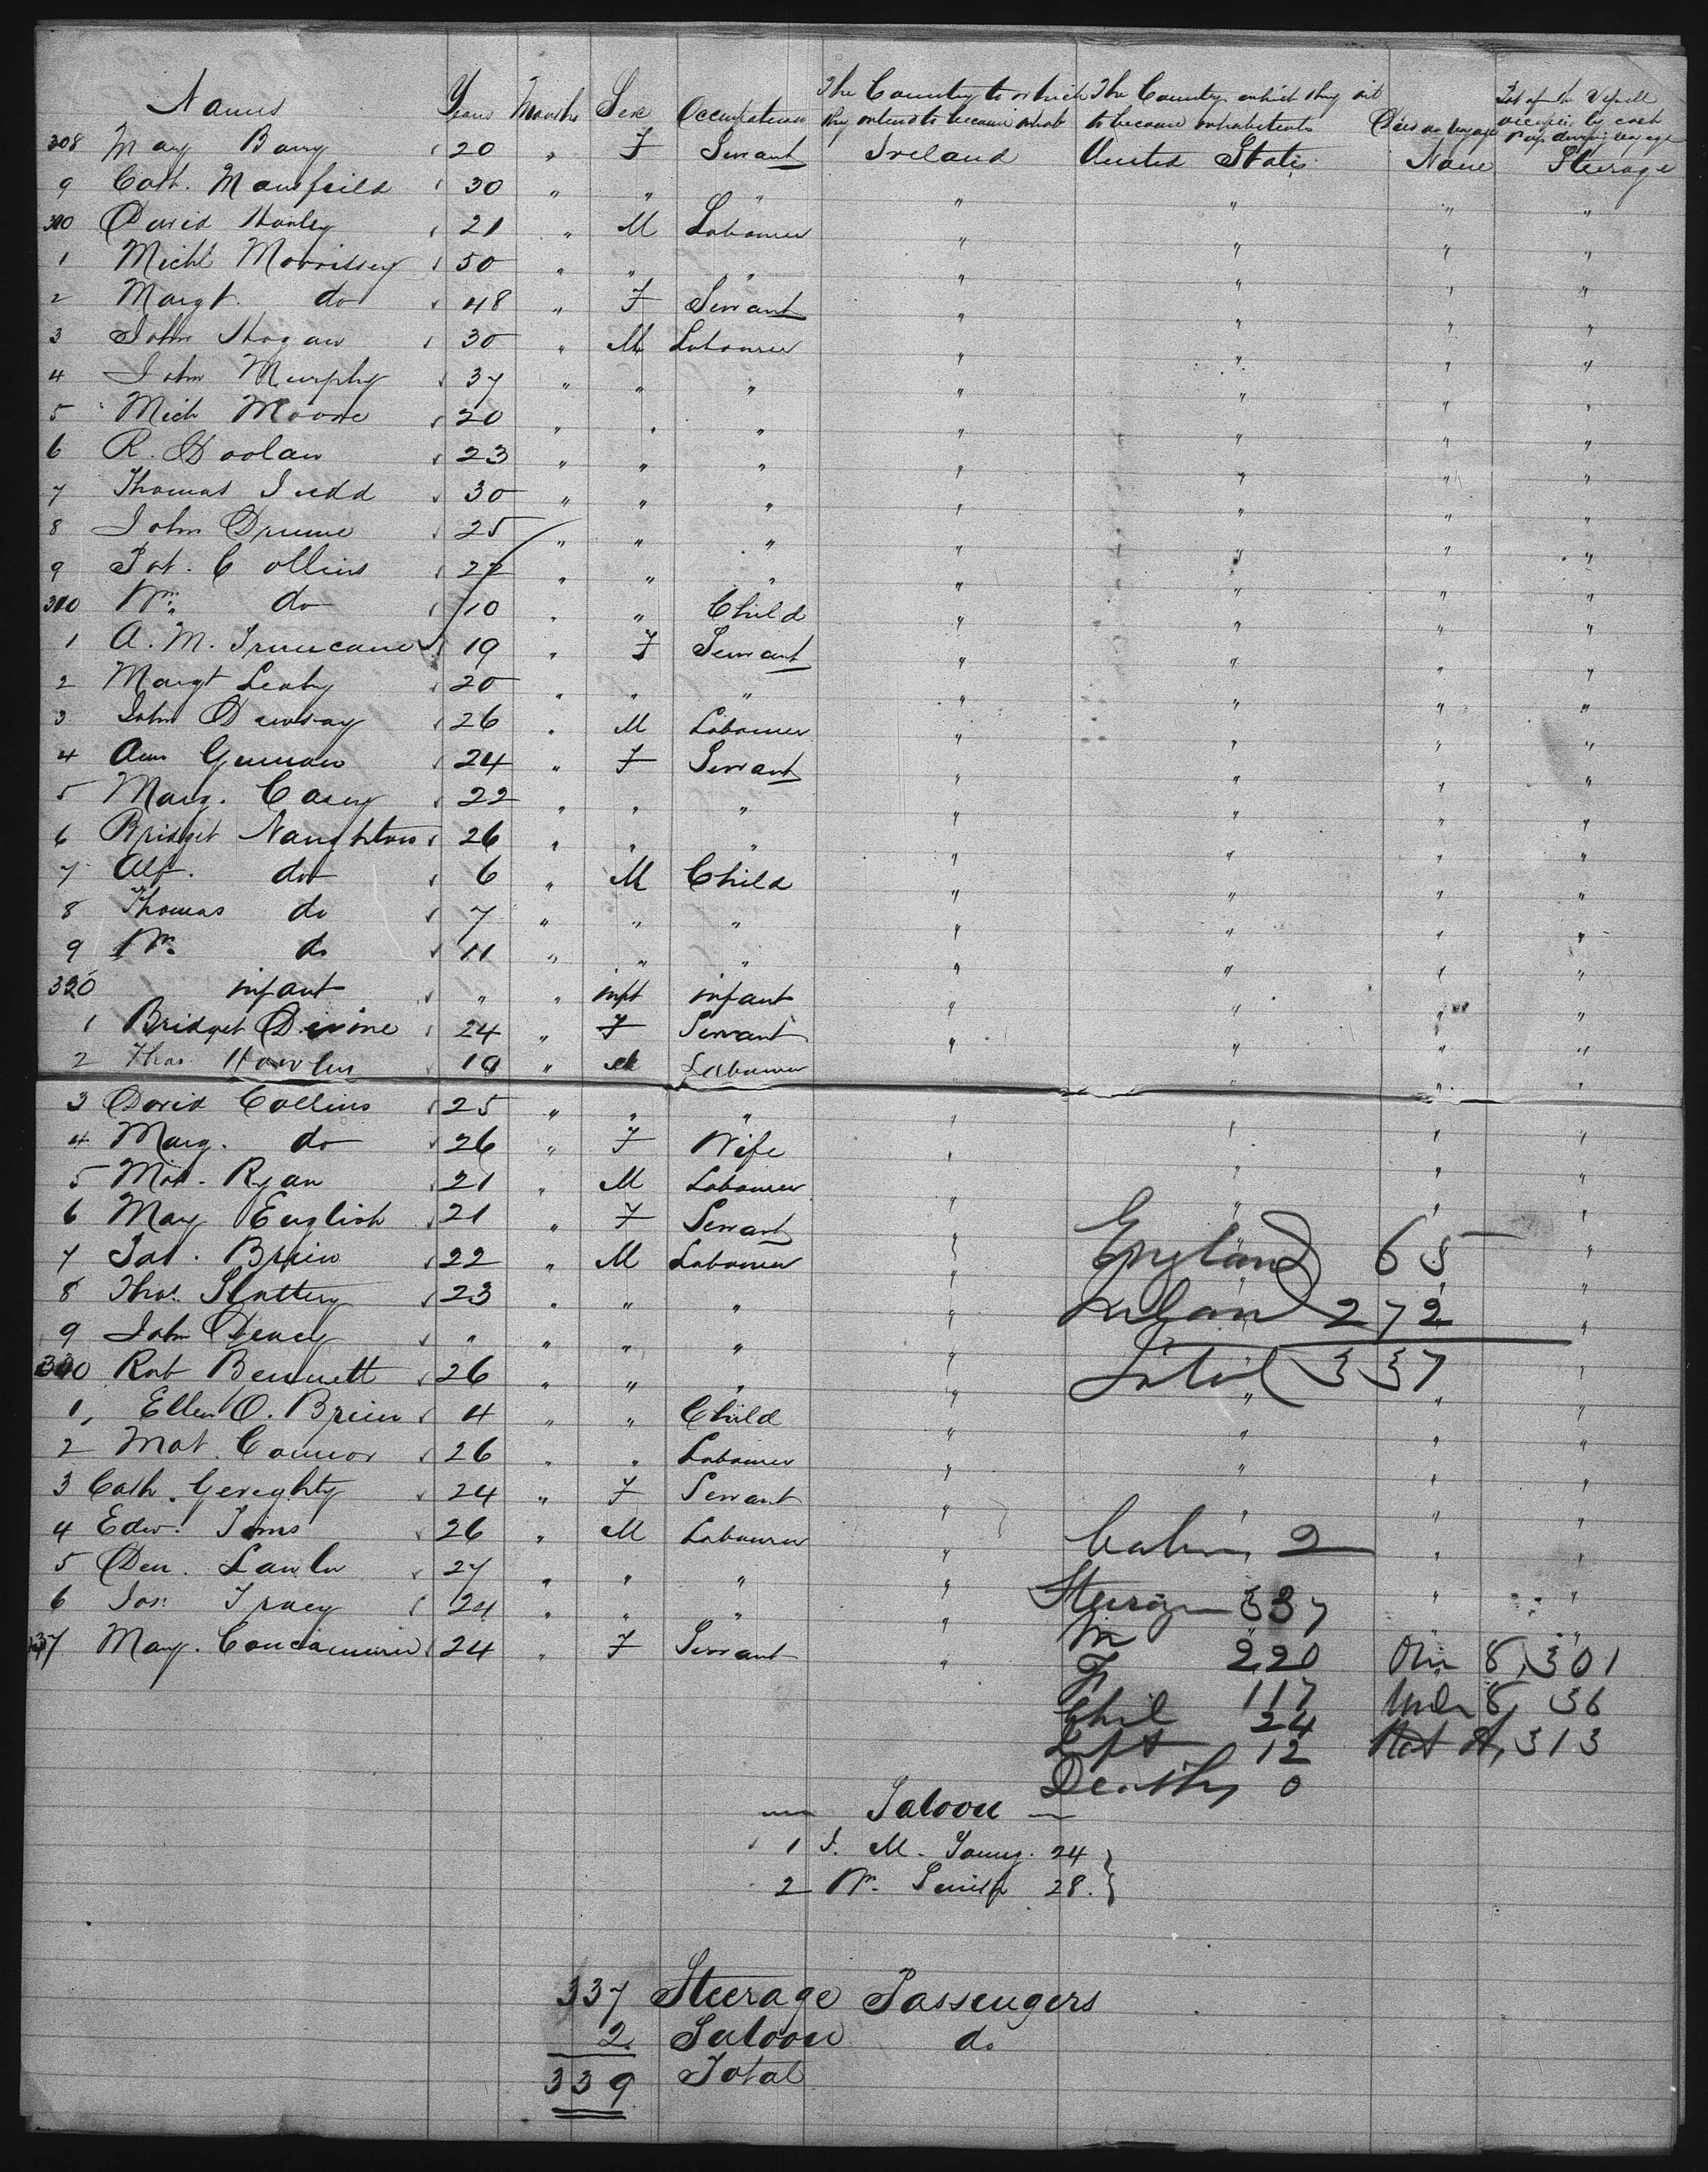 Names Years Months Sex Occupation The Country to which they intend to become inhab The Country which they int to become inhabitants Died on Voyage Part of the Vessell occupied by each Pas. during voyage
308 Mary Barry 20 " F Servant Ireland United States None Steerage
9 Cath. Mansfield 30 " " " " " " "
300 David Hanley 21 " M Labourer " " " "
1 Michl Morrissey 50 " " " " " " "
2 Margt. do 48 " F Servant " " " "
3 John Hogan 30 " M Labourer " " " "
4 John Murphy 37 " " " " " " "
5 Mich Moore 20 " " " " " " "
6 R. Doolan 23 " " " " " " "
7 Thomas Judd 30 " " " " " " "
8 John 25 " " " " " " "
9 Pat. Collins 22 " " " " " " "
300 Wm. do 10 " " Child " " " "
1 A. M. 19 " F Servant " " " "
2 Margt Leahy 20 " " " " " " "
3 John 26 " M Labourer " " " "
4 Ann 24 " F Servant " " " "
5 Marg. Casey 22 " " " " " " "
6 Bridget Naughton 26 " " " " " " "
7 Alf. do 6 " M Child " " " "
8 Thomas do 7 " " " " " " "
9 Wm. do 11 " " " " " " "
320 infant " " inft infant " " " "
1 Bridget Devine 24 " F Servant " " " "
2 Thos. Howlen 19 " M Labourer " " " "
3 David Collins 25 " " " " " " "
4 Marg. do 26 " F Wife " " " "
5 Mat. Ryan 21 " M Labourer " " " "
6 Mary English 21 " F Servant " " " "
7 Pat. Brien 22 " M Labourer " England 65 "
8 Thos. Slattery 23 " " " " Ireland 272 "
9 John " " " " " " "
330 Rob Bennett 26 " " " " Total 337 " "
1, Ellen O. Brien 4 " " Child " " " "
2 Mat. Connor 26 " " Labourer " " " "
3 Cath. Gereghty 24 " F Servant " " " "
4 Edw. 26 " M Labourer " Cabin 2 " "
5 Den. Lawler 27 " " " " " "
6 Jos. Tracy 24 " " " " Steerage 337 "
337 Mary. 24 " F Servant "
M 220 Over 8, 301
F 117 Under 8, 36
Chil 24 313
Inft 12
Deaths 0
— Saloon —
1 J. M. Young. 24
2 Wm. Smith 28.
337 Steerage Passengers
2. Saloon do
339 Total